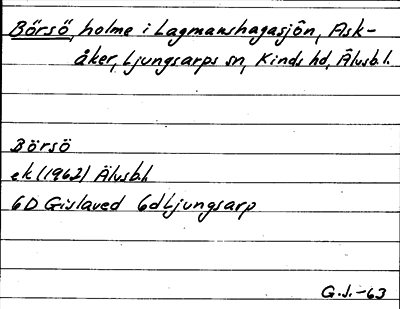 Börsö, holme i Lagmanshagasjön, Ask-
åker, Ljungsarps sn, Kinds hd, Älvsb.l.
Börsö
ek (1962) Älvsb.l.
6D Gislaved 6d Ljungsarp
G.J.-63